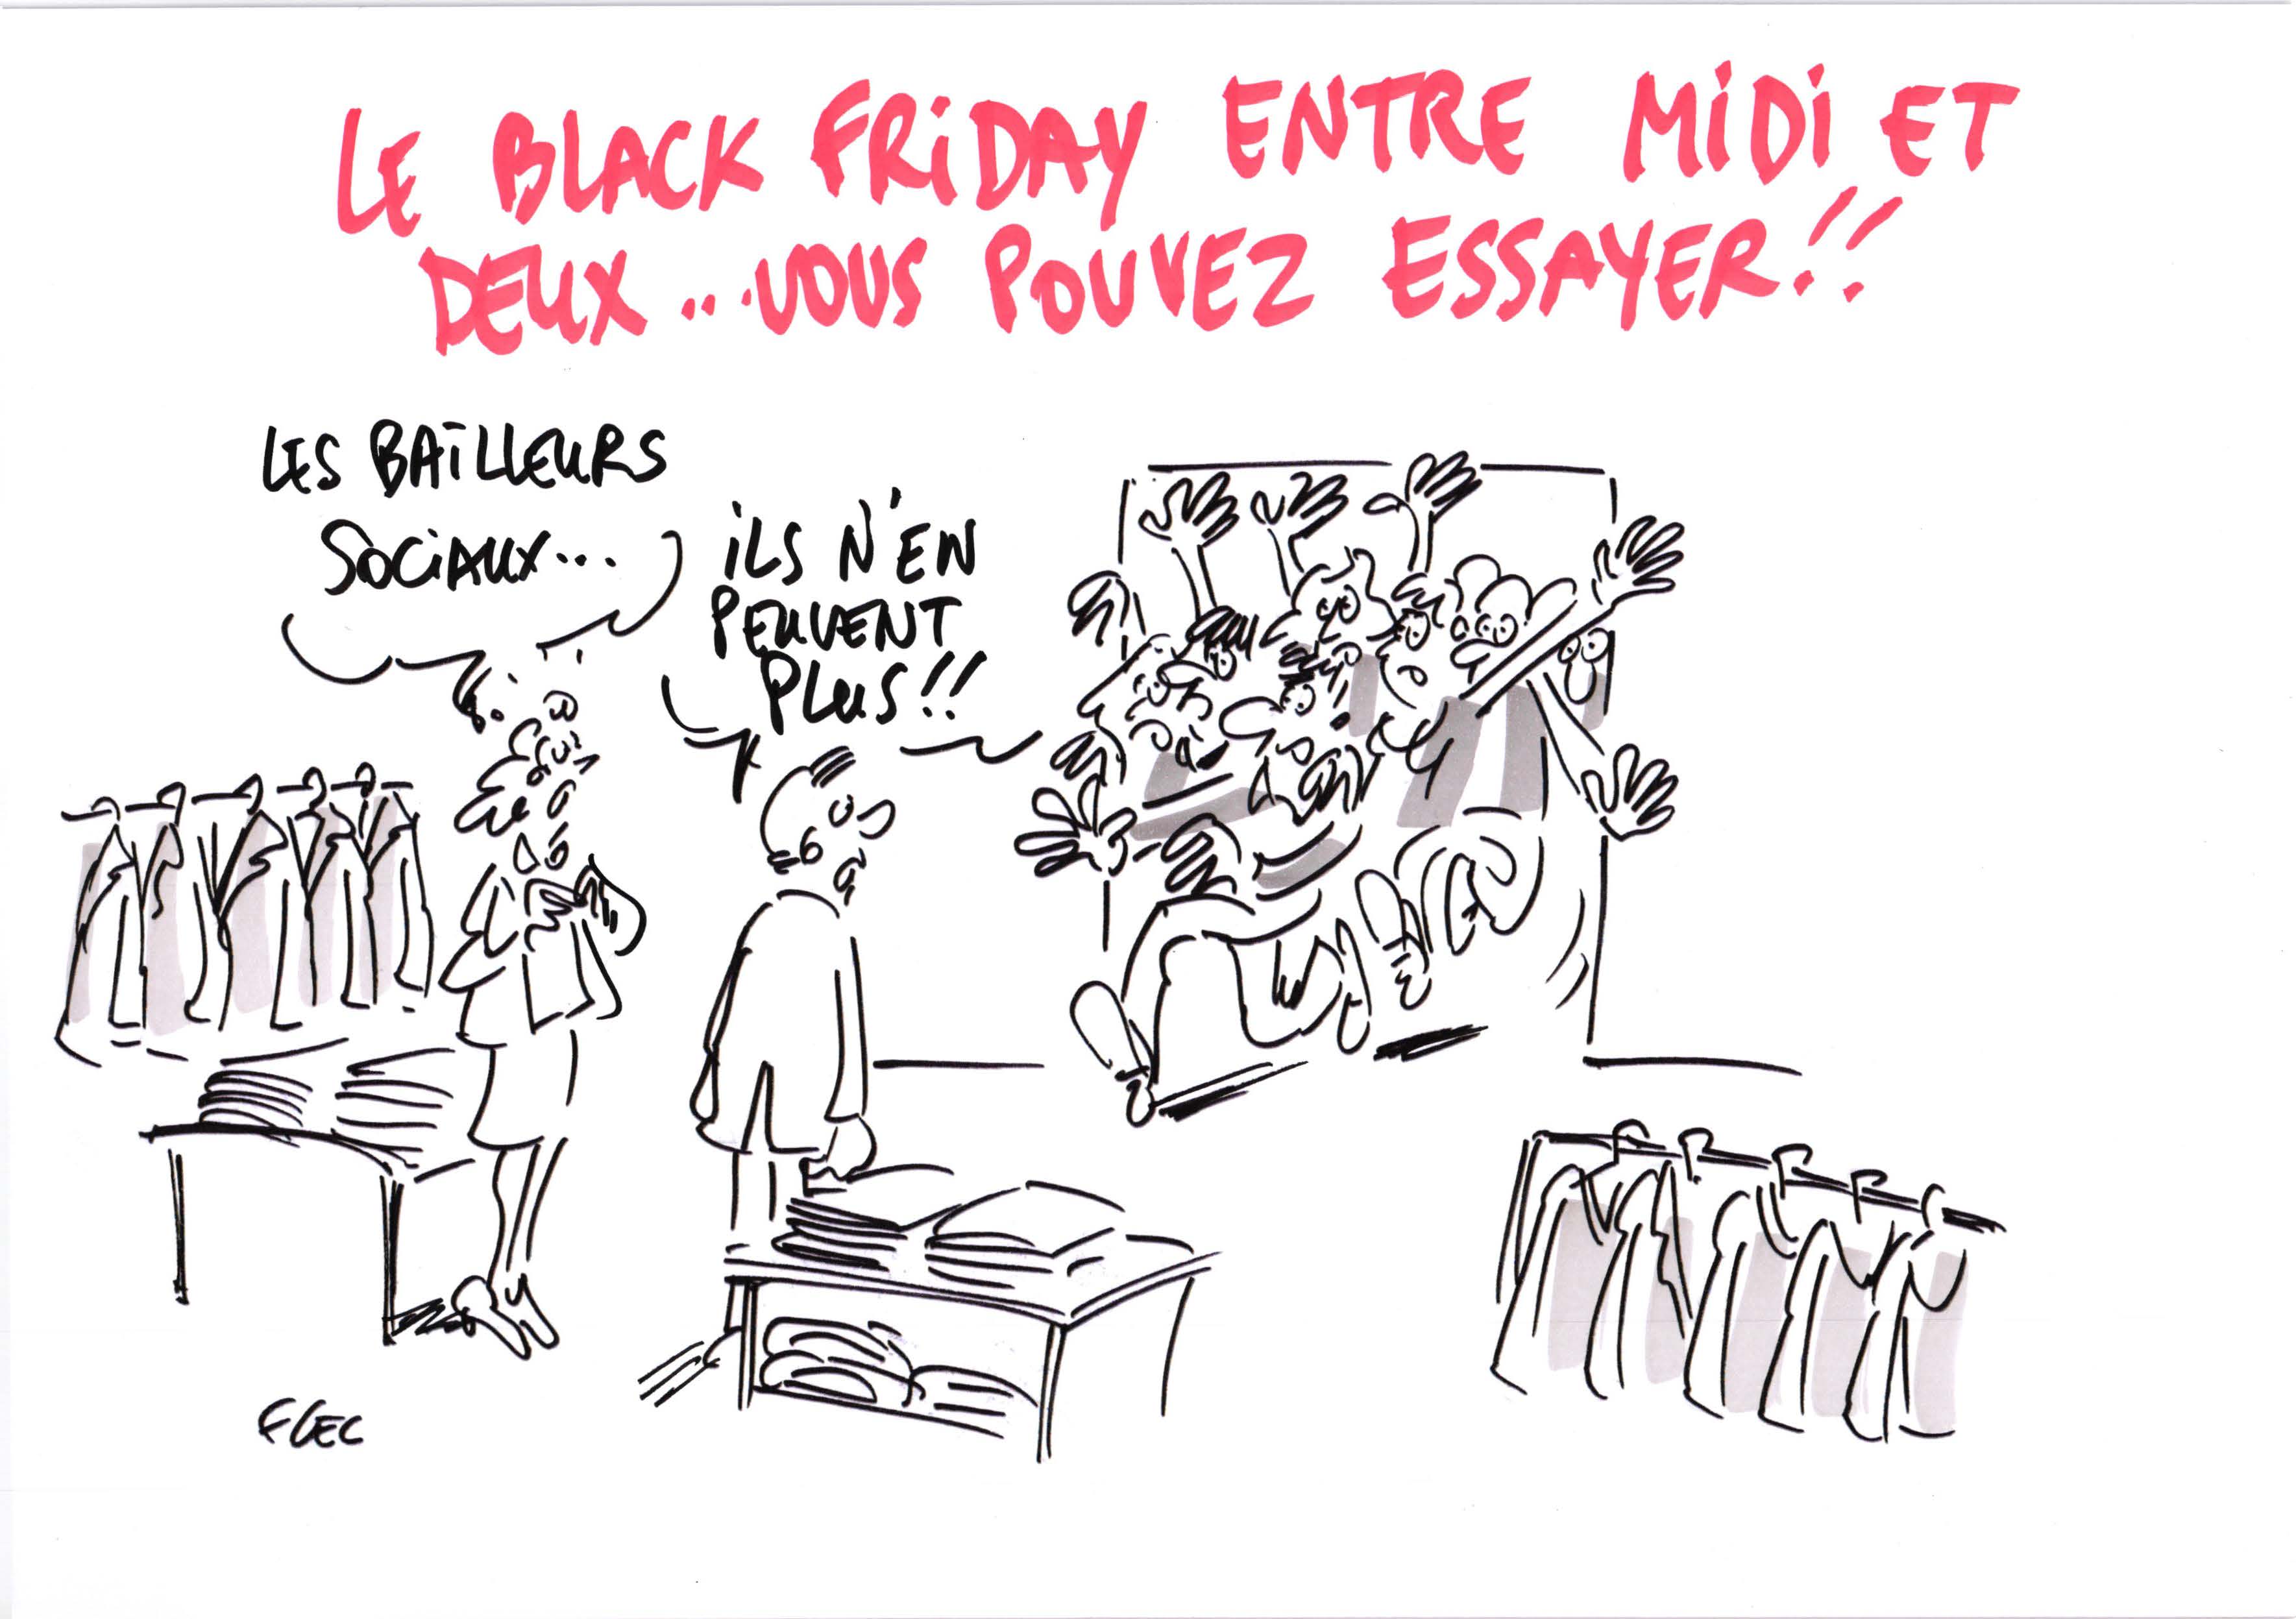 LE BLACK FRIDAY ENTRE MIDI ET
DEUX...VOUS POUVEZ ESSAYER!!
LES BAILLEURS
SOCIAUX...
ILS N'EN
PEUVENT
PLUS!!